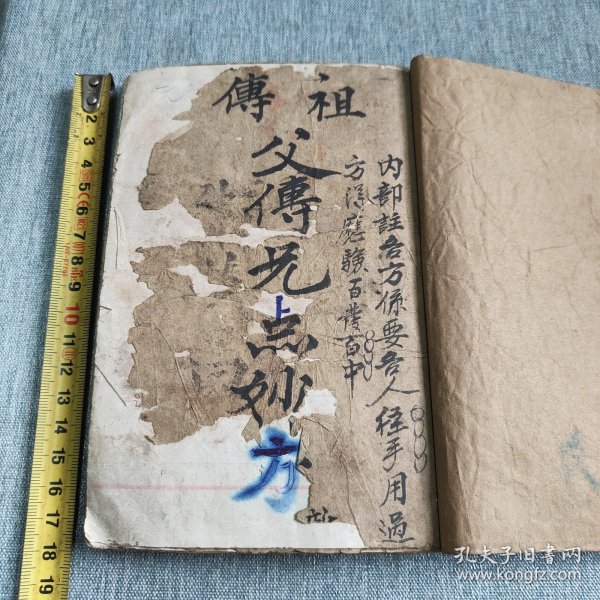 祖傳
內部註各方係要各人徑手用過
方得應驗百發百中
父傳先点妙方
2 3 4 5 6 7 8 9 10 11 12 13 14 15 16 17 18 19
孔夫子旧书网
www.kongfz.com